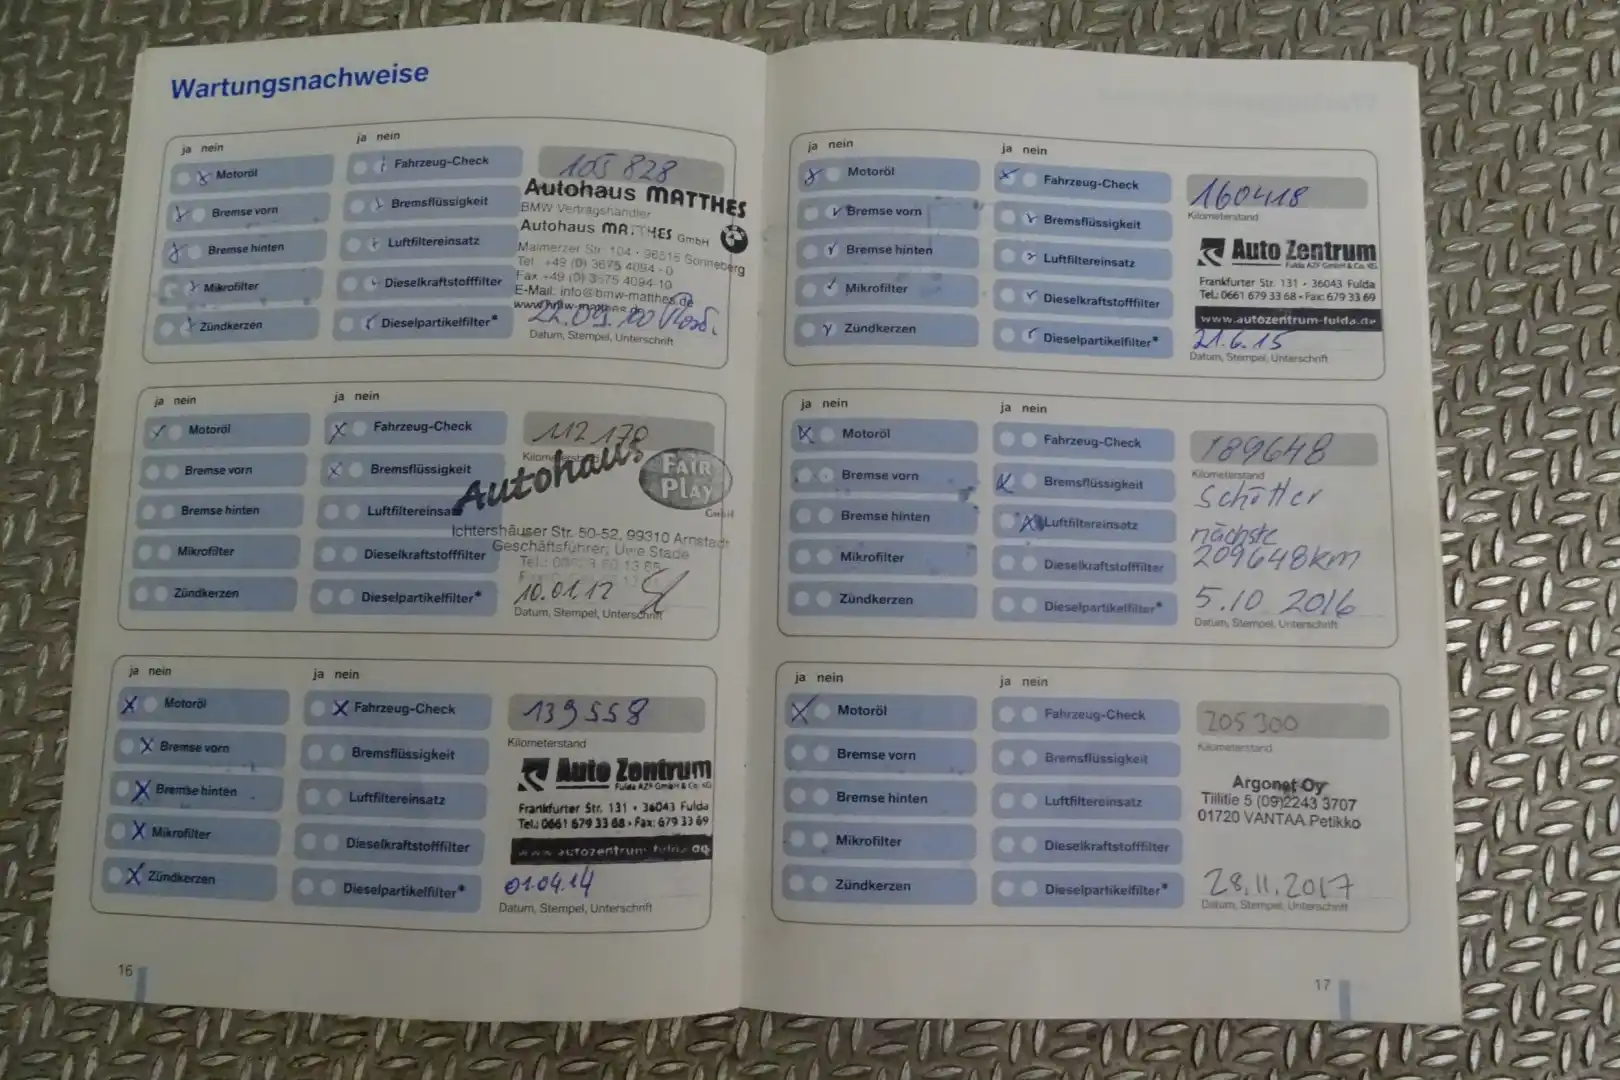 Wartungsnachweise
ja nein
Motoröl
Bremse vorn
Bremse hinten
Mikrofilter
Zündkerzen
ja nein
Fahrzeug-Check
Bremsflüssigkeit
Luftfiltereinsatz
Dieselkraftstofffilter
Dieselpartikelfilter*
105 828
Autohaus MATTHES
BMW Vertragshändler
Autohaus MATTHES GmbH
Malmerzer Str. 104 · 96515 Sonneberg
Tel. +49 (0) 3675 4094 - 0
Fax +49 (0) 3675 4094-10
E-Mail: info@bmw-matthes.de
www.bmw-matthes.de
22.09.10
Datum, Stempel, Unterschrift
ja nein
Motoröl
Bremse vorn
Bremse hinten
Mikrofilter
Zündkerzen
ja nein
Fahrzeug-Check
Bremsflüssigkeit
Luftfiltereinsatz
Dieselkraftstofffilter
Dieselpartikelfilter*
112 178
Kilometerstand
Autohaus
FAIR
PLAY
GmbH
Ichtershäuser Str. 50-52, 99310 Arnstadt
Geschäftsführer: Uwe Stade
Tel.:
10.01.12
Datum, Stempel, Unterschrift
ja nein
Motoröl
Bremse vorn
Bremse hinten
Mikrofilter
Zündkerzen
ja nein
Fahrzeug-Check
Bremsflüssigkeit
Luftfiltereinsatz
Dieselkraftstofffilter
Dieselpartikelfilter*
139558
Kilometerstand
Auto Zentrum
Fulda AZF GmbH & Co. KG
Frankfurter Str. 131 · 36043 Fulda
Tel.: 0661 679 33 68 · Fax: 679 33 69
www.autozentrum-fulda.de
01.04.14
Datum, Stempel, Unterschrift
16
ja nein
Motoröl
Bremse vorn
Bremse hinten
Mikrofilter
Zündkerzen
ja nein
Fahrzeug-Check
Bremsflüssigkeit
Luftfiltereinsatz
Dieselkraftstofffilter
Dieselpartikelfilter*
160418
Kilometerstand
Auto Zentrum
Fulda AZF GmbH & Co. KG
Frankfurter Str. 131 · 36043 Fulda
Tel.: 0661 679 33 68 · Fax: 679 33 69
www.autozentrum-fulda.de
21.6.15
Datum, Stempel, Unterschrift
ja nein
Motoröl
Bremse vorn
Bremse hinten
Mikrofilter
Zündkerzen
ja nein
Fahrzeug-Check
Bremsflüssigkeit
Luftfiltereinsatz
Dieselkraftstofffilter
Dieselpartikelfilter*
189648
Kilometerstand
nächste
209648km
5.10 2016
Datum, Stempel, Unterschrift
ja nein
Motoröl
Bremse vorn
Bremse hinten
Mikrofilter
Zündkerzen
ja nein
Fahrzeug-Check
Bremsflüssigkeit
Luftfiltereinsatz
Dieselkraftstofffilter
Dieselpartikelfilter*
205300
Kilometerstand
Argonet Oy
Tiilitie 5 (09)2243 3707
01720 VANTAA Petikko
28.11.2017
Datum, Stempel, Unterschrift
17